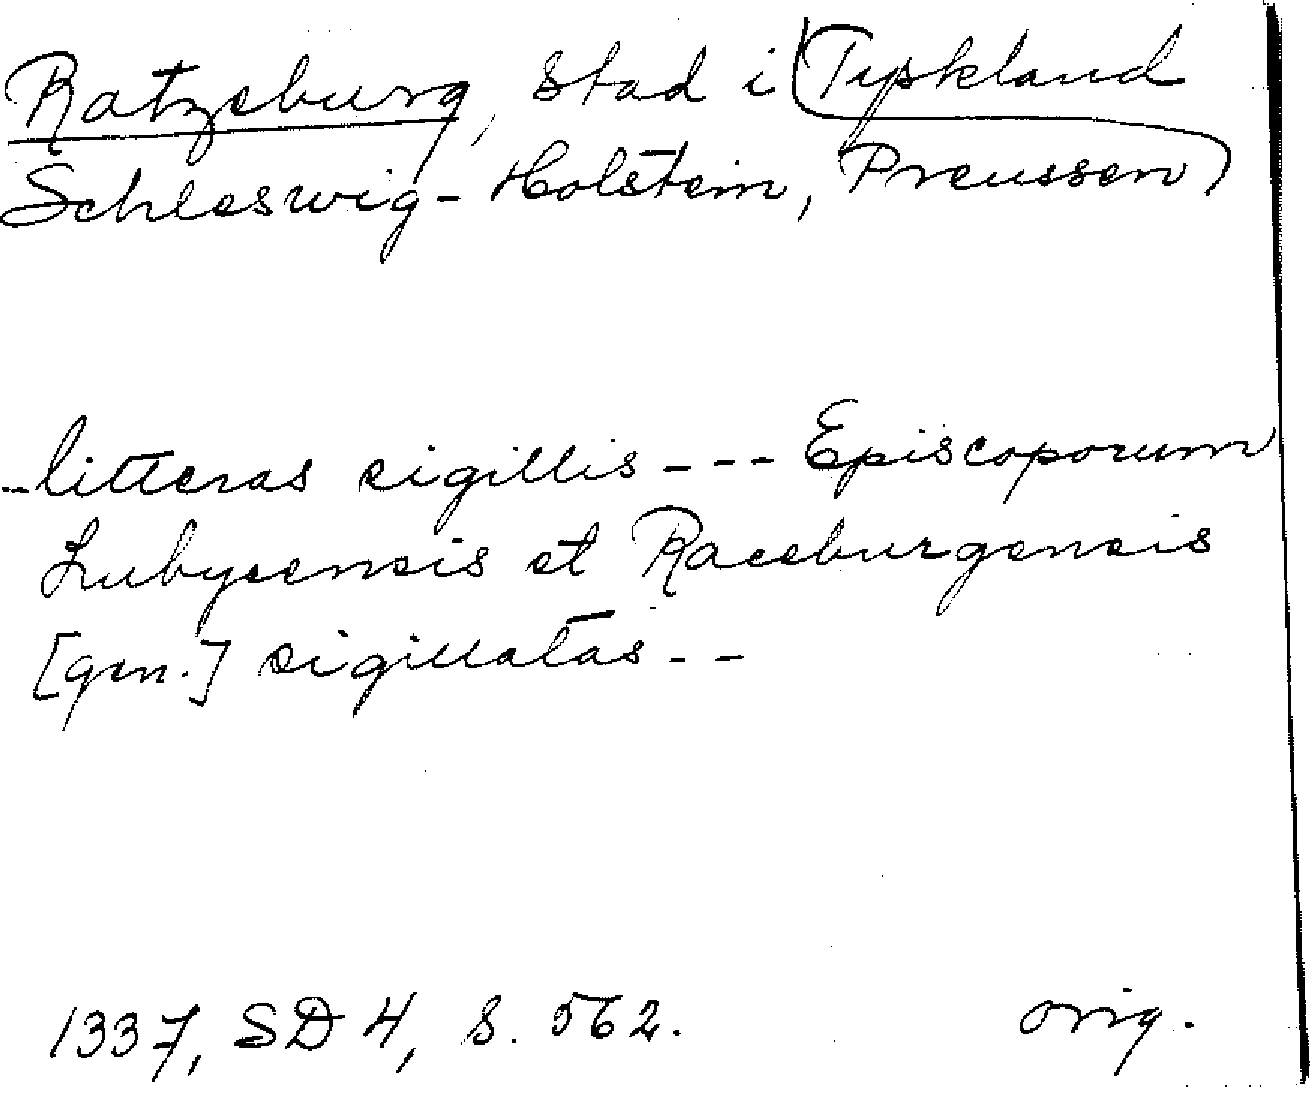 Ratzeburg, stad i (Tyskland
Schleswig-Holstein, Preussen)
--litteras sigillis --- Episcoporum
Lubycensis et Raceburgensis
[gen.] sigillatas --
1337, SD 4, s. 562. orig.